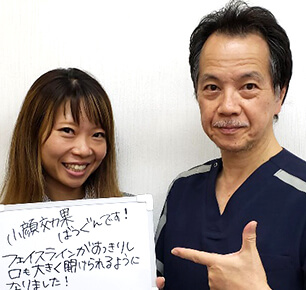 小顔効果
ばつぐんです!
フェイスラインがすっきりし
口も大きく開けられるように
なりました!